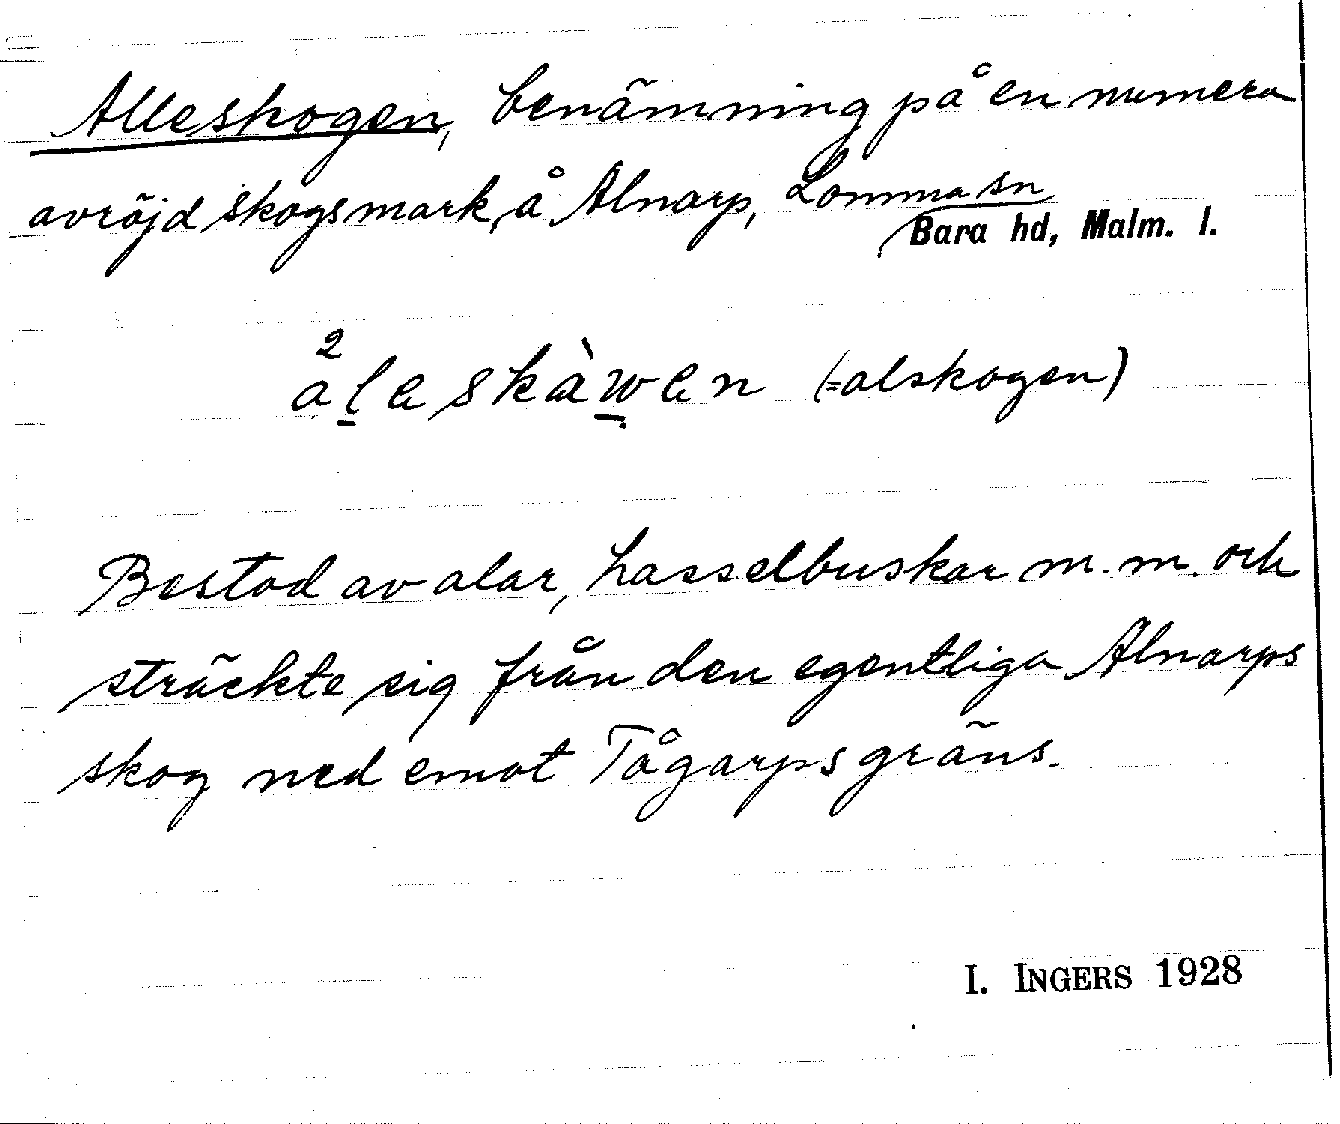 Alleskogen, benämning på en numera
avröjd skogsmark, å Alnarp, Lomma sn
Bara hd, Malm. l.
2
aleskàwen (=alskogen)
Bestod av alar, hasselbuskar m.m. och
sträckte sig från den egentliga Alnarps
skog ned emot Tågarps gräns.
I. INGERS 1928